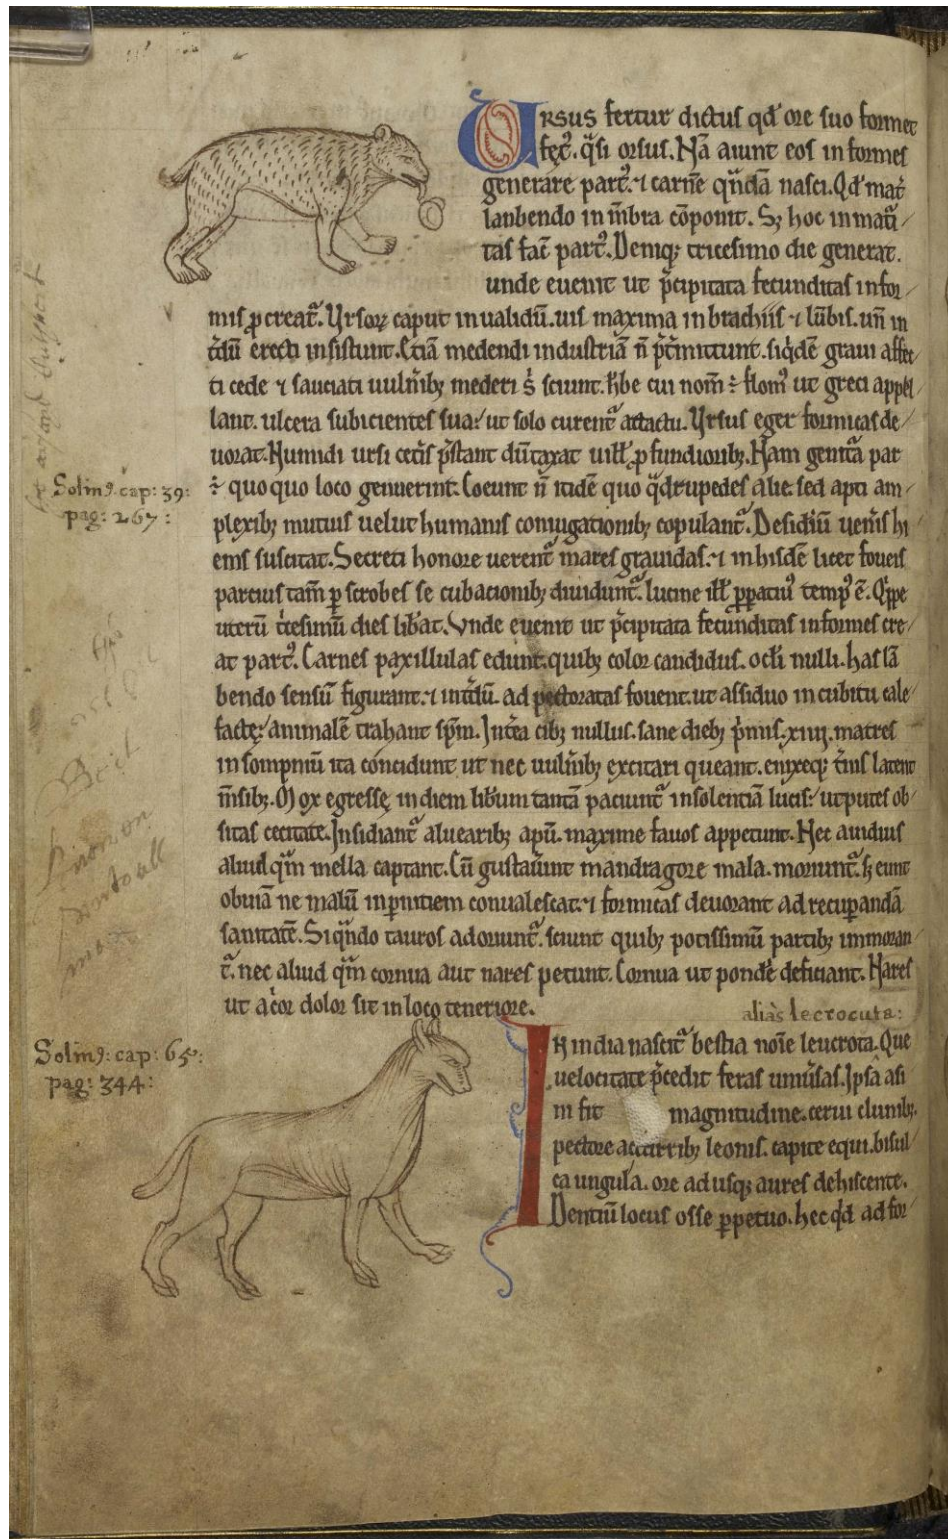 Ursus fertur dictus qd' ore suo formet
fęt᷒. q̃si orsus. Nā aiunt eos informes
generare part᷒. ⁊ carnē qñdā nasci. Qd' mat̃
lanbendo in m̃bra cōponit. Sꝫ hoc inmatũ
tas fac̃ part᷒. Deniqꝫ tricesimo die generat.
unde euenit ut p̃cipitata fecunditas infor
mis ꝓcreat᷑. Ursoꝝ caput inualidū. uis maxima in brachiis ⁊ lūbis. uñ in
t̃dū erecti insistunt. Etiā medendi industriā ñ p̃t̃mittunt. siq̇dē graui affec
ti cede ⁊ sauciati uulñibꝫ mederi s̃ sciunt. h̃be cui nom̃ ÷ flom᷒ ut greci appel
lant. ulcera subicientes sua. ut solo curent᷑ attactu. Ursus eger formicas de
uorat. Numidi ursi cet̃is p̃stant dũtaxat uill̃ ꝓfundioribꝫ. Nam genit̃a par
÷ quoquo loco genuerint. Coeunt ñ itidē quo q̃drupedes alie. sed apti am
plexibꝫ mutuis uelut humanis coniugationibꝫ copulant᷑. Desidiũ uen̄is hi
ems suscitat. Secreti honore uerent᷑ mares grauidas. ⁊ in hisdē licet foueis
parcius tam̃ ꝑ scrobes se cubacionibꝫ diuidunt᷑. lucine ill̃ ꝑꝑaciu᷒ temp᷒ ē. Q̇ppe
uterū t̃cesimũ dies lib̃at. Unde euenit ut p̃cipitata fecunditas informes cre
at part᷒. Carnes paxillulas edunt. quibꝫ color candidus. oc̃li nulli. has lā
bendo sensũ figurant. ⁊ int̃dũ. ad pectoratas fouent. ut assiduo incubitu cale
factę. animalē trahant sp̃m. Int̃ea cibꝫ nullus. sane diebꝫ p̃mis. xiiij. matres
in sompniũ ita concidunt ut nec uuln̄ibꝫ excitari queant. enixeqꝫ t̃nis latent
m̃sibꝫ. Mox egressę in diem lib̃um tantā paciunt᷑ insolentiā lucis. ut putes ob
sitas cecitate. Insidiant᷑ aluearibꝫ apũ. maxime fauos appetunt. Nec auidius
aliud q̃m mella captant. Cũ gustau̇̃int mandragore mala. moriunt᷑. sꝫ eunt
obuiā ne malũ in ꝑnitiem conualescat. ⁊ formicas deuorant ad recuꝑandā
sanitatē. Si q̃ndo tauros adoriunt᷑. sciunt quibꝫ potissimũ partibꝫ immoran
t᷑. nec aliud q̃m cornua aut nares petunt. Cornua ut pond̃e deficiant. Nares
ut ac̃or dolor sit in loco teneriore.
Solin9. cap: 39:
pag: 267:
aliàs lecrocuta:
In india nascit᷑ bestia noīe leucrota. Que
uelocitate p̃cedit feras uniũsas. Ipsa asi
ni fit magnitudine. cerui clunibꝫ.
pectore ac cruribꝫ leonis. capite equi. bisul
ca ungula. ore ad usqꝫ aures dehiscente.
Dentiũ locus osse ꝑpetuo. hec q̇d ad for
Solin9: cap: 65:
pag: 344: